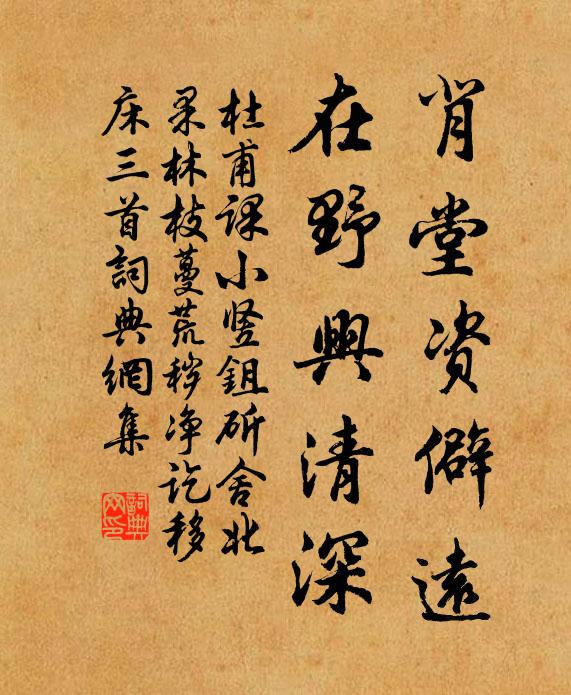 背堂资僻远
在野興清深
杜甫课小竖鉏斫舍北
果林枝蔓荒秽净讫移
床三首詞典網集
詞典网印